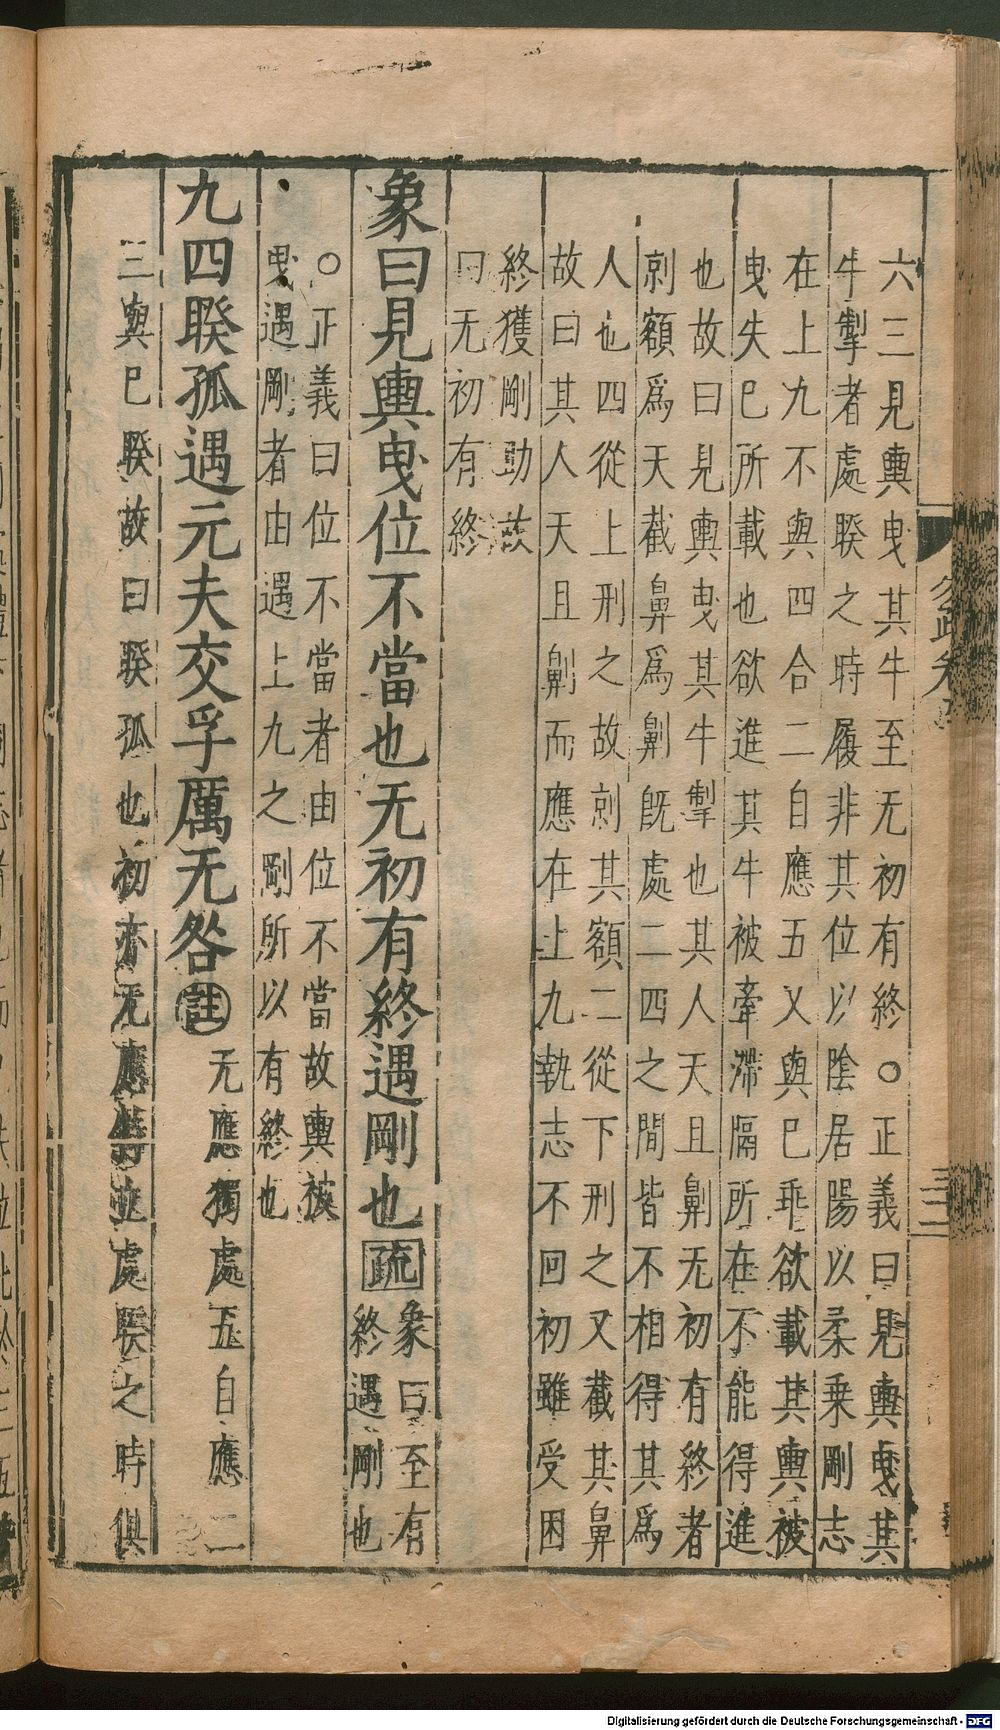 六三見輿曳其牛至无初有終○正義曰見輿曳其
牛掣者處睽之時履非其位以陰居陽以柔乗剛志
在上九不與四合二自應五又與巳乖欲載其輿被
曳失巳所載也欲進其牛被牽滯隔所在不能得進
也故曰見輿曳其牛掣也其人天且劓无初有終者
剠額爲天截鼻爲劓旣處二四之間皆不相得其爲
人也四從上刑之故剠其額二從下刑之又截其鼻
故曰其人天且劓而應在上九執志不回初雖受困
終獲剛助故
曰无初有終
象曰見輿曳位不當也无初有終遇剛也疏
象曰至有
終遇剛也
○正義曰位不當者由位不當故輿被
曳遇剛者由遇上九之剛所以有終也
九四睽孤遇元夫交孚厲无咎註
无應獨處五自應二
三與巳睽故曰睽孤也初亦无應特立處睽之時俱
疏卷
三二
Digitalisierung gefördert durch die Deutsche Forschungsgemeinschaft - DFG